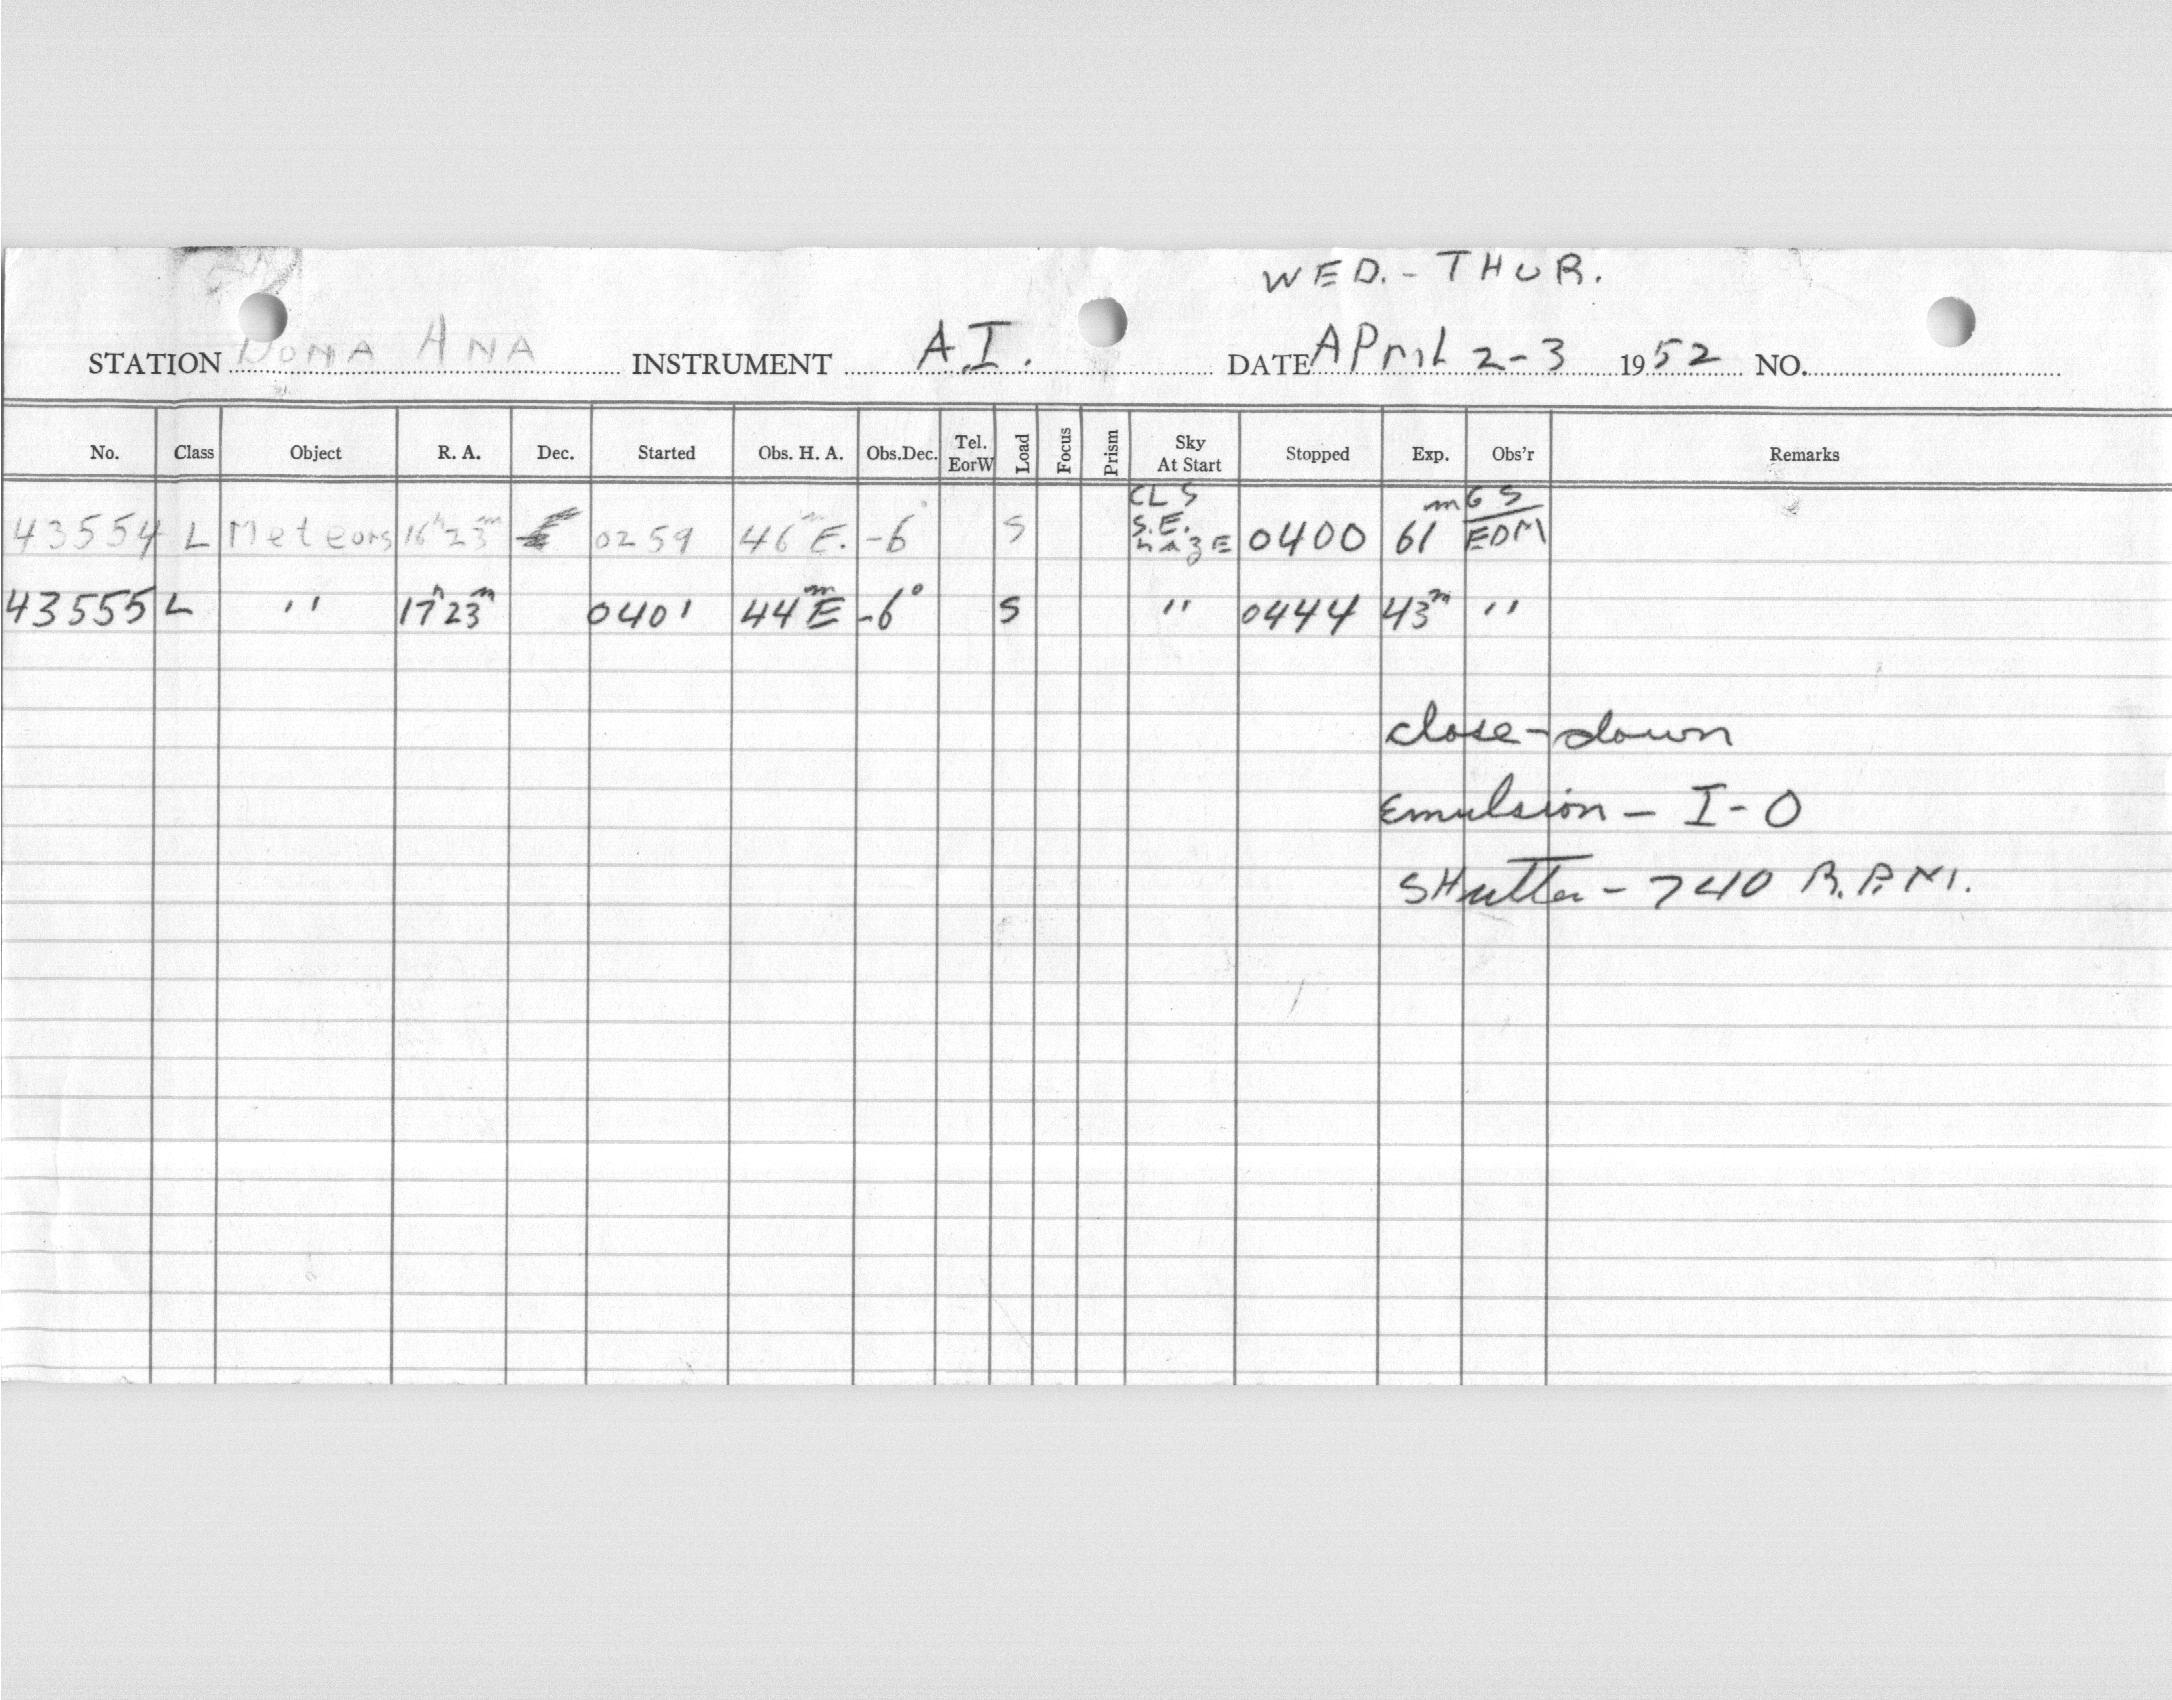 WED. - THUR.
STATION DONA ANA INSTRUMENT A.I. DATE APriL 2-3 1952 NO.
No. Class Object R. A. Dec. Started Obs. H. A. Obs.Dec. Tel. EorW Load Focus Prism Sky At Start Stopped Exp. Obs'r Remarks
43554 L Meteors 16h 23m 0259 46m E. -6° S CL S S.E. hazE 0400 61m GS/EDM
43555 L " 17h 23m 0401 44m E -6° S " 0444 43m "
close-down
Emulsion - I-O
SHutter - 740 R.P.M.